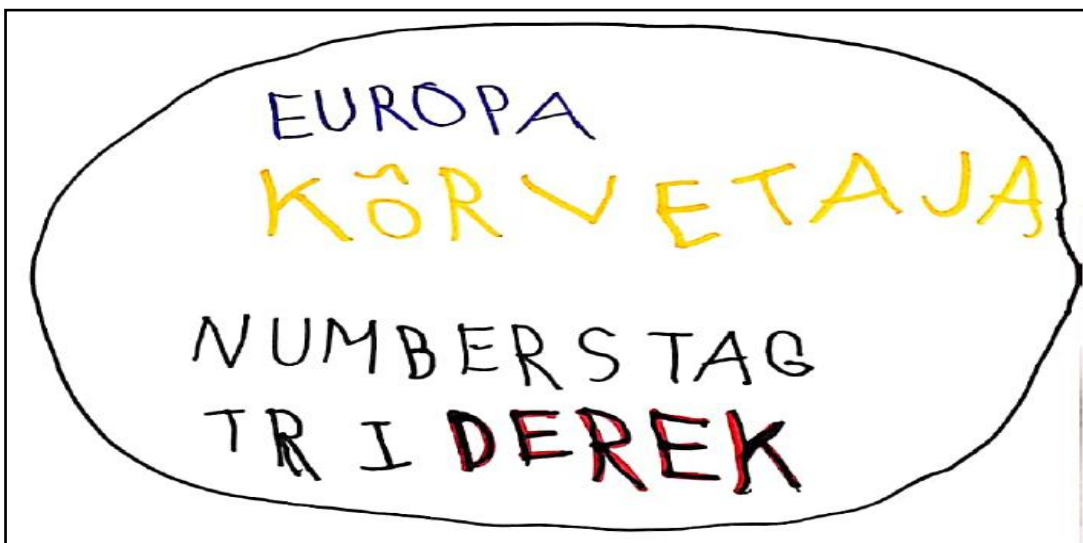 EUROPA
KÕRVETAJA
NUMBERSTAG
TRIDEREK